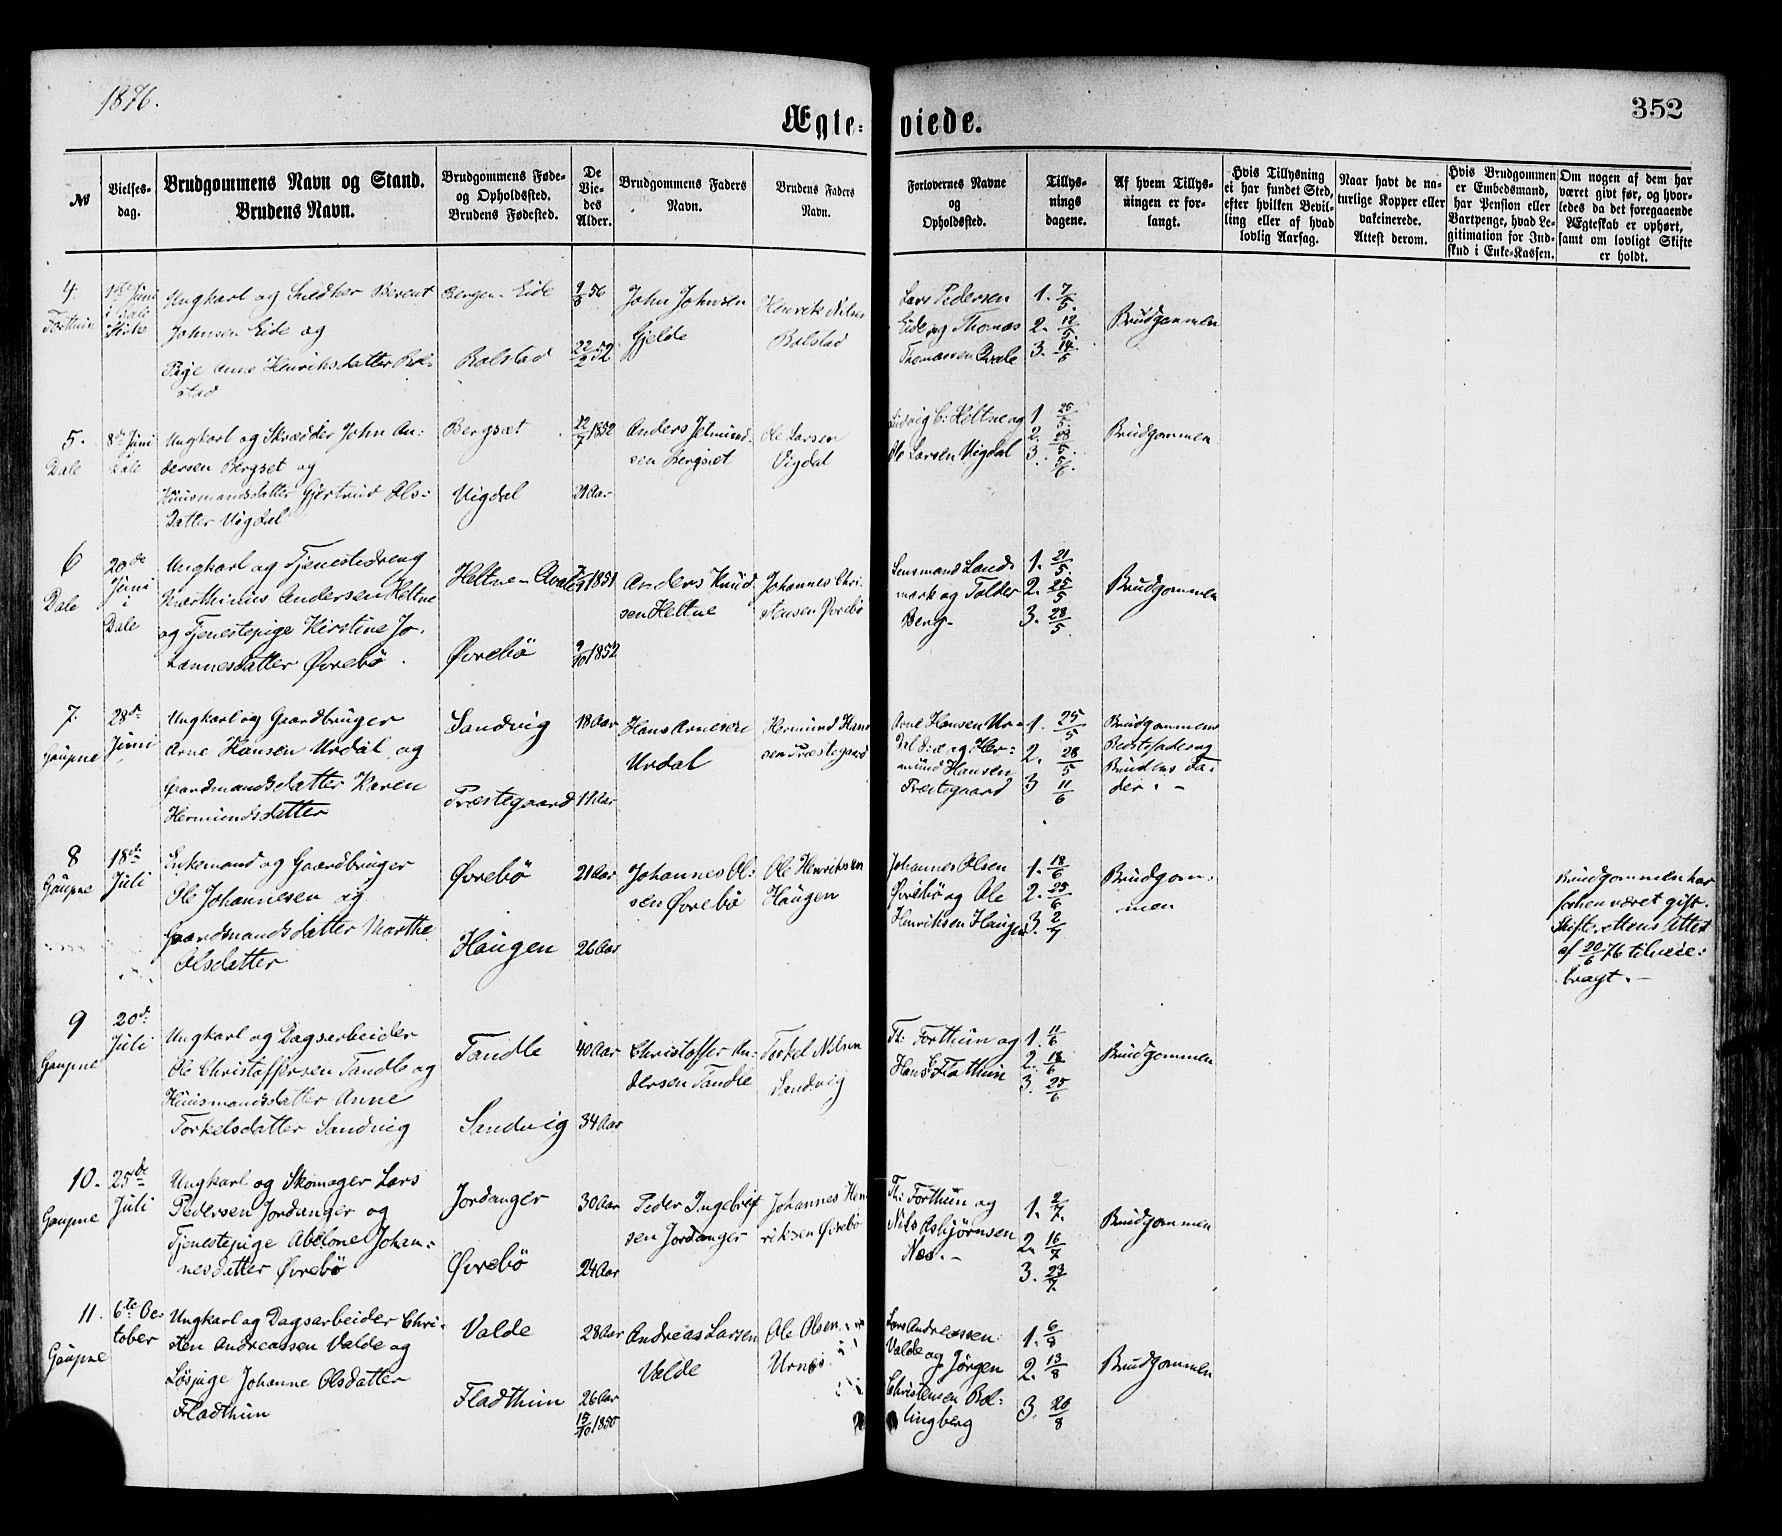 1876.
352
Ægte-viede.
No
Vielses-dag.
Brudgommens Navn og Stand.
Brudens Navn.
Brudgommens Føde- og Opholdssted.
Brudens Fødested.
De Vie-des Alder.
Brudgommens Faders Navn.
Brudens Faders Navn.
Forlovernes Navne og Opholdssted.
Tillys-nings dagene.
Af hvem Tillys-ningen er for-langt.
Hvis Tillysning ei har fundet Sted, efter hvilken Bevil-ling eller af hvad lovlig Aarsag.
Naar havt de na-turlige Kopper eller vakcinerede. Attest derom.
Hvis Brudgommen er Embedsmand, har Pension eller Vartpenge, hvad Le-gitimation for Ind-skud i Enke-Kassen.
Om nogen af dem har været givt før, og hvor-ledes da det foregaaende Ægteskab er ophørt, samt om lovligt Skifte er holdt.
4.
Forthun
Juni
Ungkarl og Snedker Berent
Johnsen Eide og
Pige Anne Henriksdatter Bol-
stad
Bergen - Eide
Bolstad
9/8 56
22/2 52
John Johnsen
Gjelde
Henrik Nilsen
Bolstad
Lars Pedersen
Eide og Thomas
Thomassen Qvale
1. 7/5.
2. 12/5
3. 14/5
Brudgommen
5.
Dale
8de Juni
Dale
Ungkarl og Skrædder John An-
dersen Bergset og
Huusmandsdatter Gjertrud Ols-
datter Vigdal
Bergsæt
Vigdal
22/7 1852
29 Aar
Anders Jetmund-
sen Bergsæt
Ole Larsen
Vigdal
Ludvig C: Heltne og
Ole Larsen Vigdal
1 25/5.
2. 28/5.
3. 5/6
Brudgommen.
6
Dale
20de
Juni
i
Dale
Ungkarl og Tjenestedreng
Marthinus Andersen Heltne
og Tjenestepige Kirstine Jo-
hannesdatter Øvrebø.
Heltne - Qvale
Øvrebø
1851
9/10 1852
Anders Knud
sen Heltne
Johannes Chri-
stensen Øvrebø
Lensmand Land-
mark og Tolder
Berg-
1. 21/5.
2. 25/5
3. 28/5.
Brudgommen
7.
Gaupne
28de
Juni
Ungkarl og Gaardbruger
Arne Hansen Urdal og
Gaardmandsdatter Karen
Hermundsdatter
Sandvig
Præstegaard
18 Aar
18 Aar
Hans Arnesen
Urdal
Hermund Han
sen Præstegaard
Arne Hansen Ur-
dal d:æ og Her-
mund Hansen
Præstegaard
1. 25/5
2. 28/5
3 11/6
Brudgommens
Bedstefader og
Brudens Fa-
der. -
8
Gaupne
18de
Juli
Enkemand og Gaardbruger
Ole Johannesen og
Gaardmandsdatter Marthe
Olsdatter
Øvrebø
Haugen
21 Aar
26 Aar
Johannes Ol-
sen Øvrebø
Ole Henriksen
Haugen
Johannes Olsen
Øvrebø og Ole
Henriksen Haugen
1. 18/6
2. 25/6
3. 2/7
Brudgom-
men
Brudgommen har
forhen været gift.
Skifterettens Attest
af 20/6 76 tilveie-
bragt. -
9
Gaupne
20de
Juli
Ungkarl og Dagsarbeider
Ole Christoffersen Tandle og
Huusmandsdatter Anne
Torkelsdatter Sandvig
Tandle
Sandvig
40 Aar
34 Aar
Christoffer An-
dersen Tandle
Torkel Nilsen
Sandvig
Th: Forthun og
Hans Flathun
1. 11/6
2. 18/6
3. 25/6
Brudgommen
10.
Gaupne
25de
Juli
Ungkarl og Skomager Lars
Pedersen Jordanger og
Tjenestepige Abelone Johan-
nesdatter Øvrebø
Jordanger
Øvrebø
30 Aar
24 Aar
Peder Ingebrigt
sen Jordanger
Johannes Hen
riksen Øvrebø
Th: Forthun og
Nils Asbjørnsen
Næs. -
1. 2/7.
2. 16/7
3. 23/7.
Brudgommen
11.
Gaupne
6te Oc-
tober
Ungkarl og Dagsarbeider Chri-
sten Andreassen Valde og
Løspige Johanne Olsdatter
Fladthun
Valde
Fladthun
28 Aar
26 Aar
15/10 1850
Andreas Larsen
Valde
Ole Olsen
Urnes
Lars Andreassen
Valde og Jørgen
Christensen Bol-
lingberg
1. 6/8
2. 13/8
3. 20/8
Brudgommen